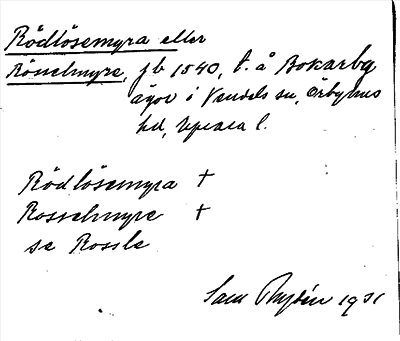 Rödlösemyra eller
Rösselmyre, jb 1540, t. å Bokarby
ägor i Vendels sn, Örbyhus
hd, Uppsala l.
Rödlösemyra †
Rosselmyre †
se Rossle
Sam Rydén 1931